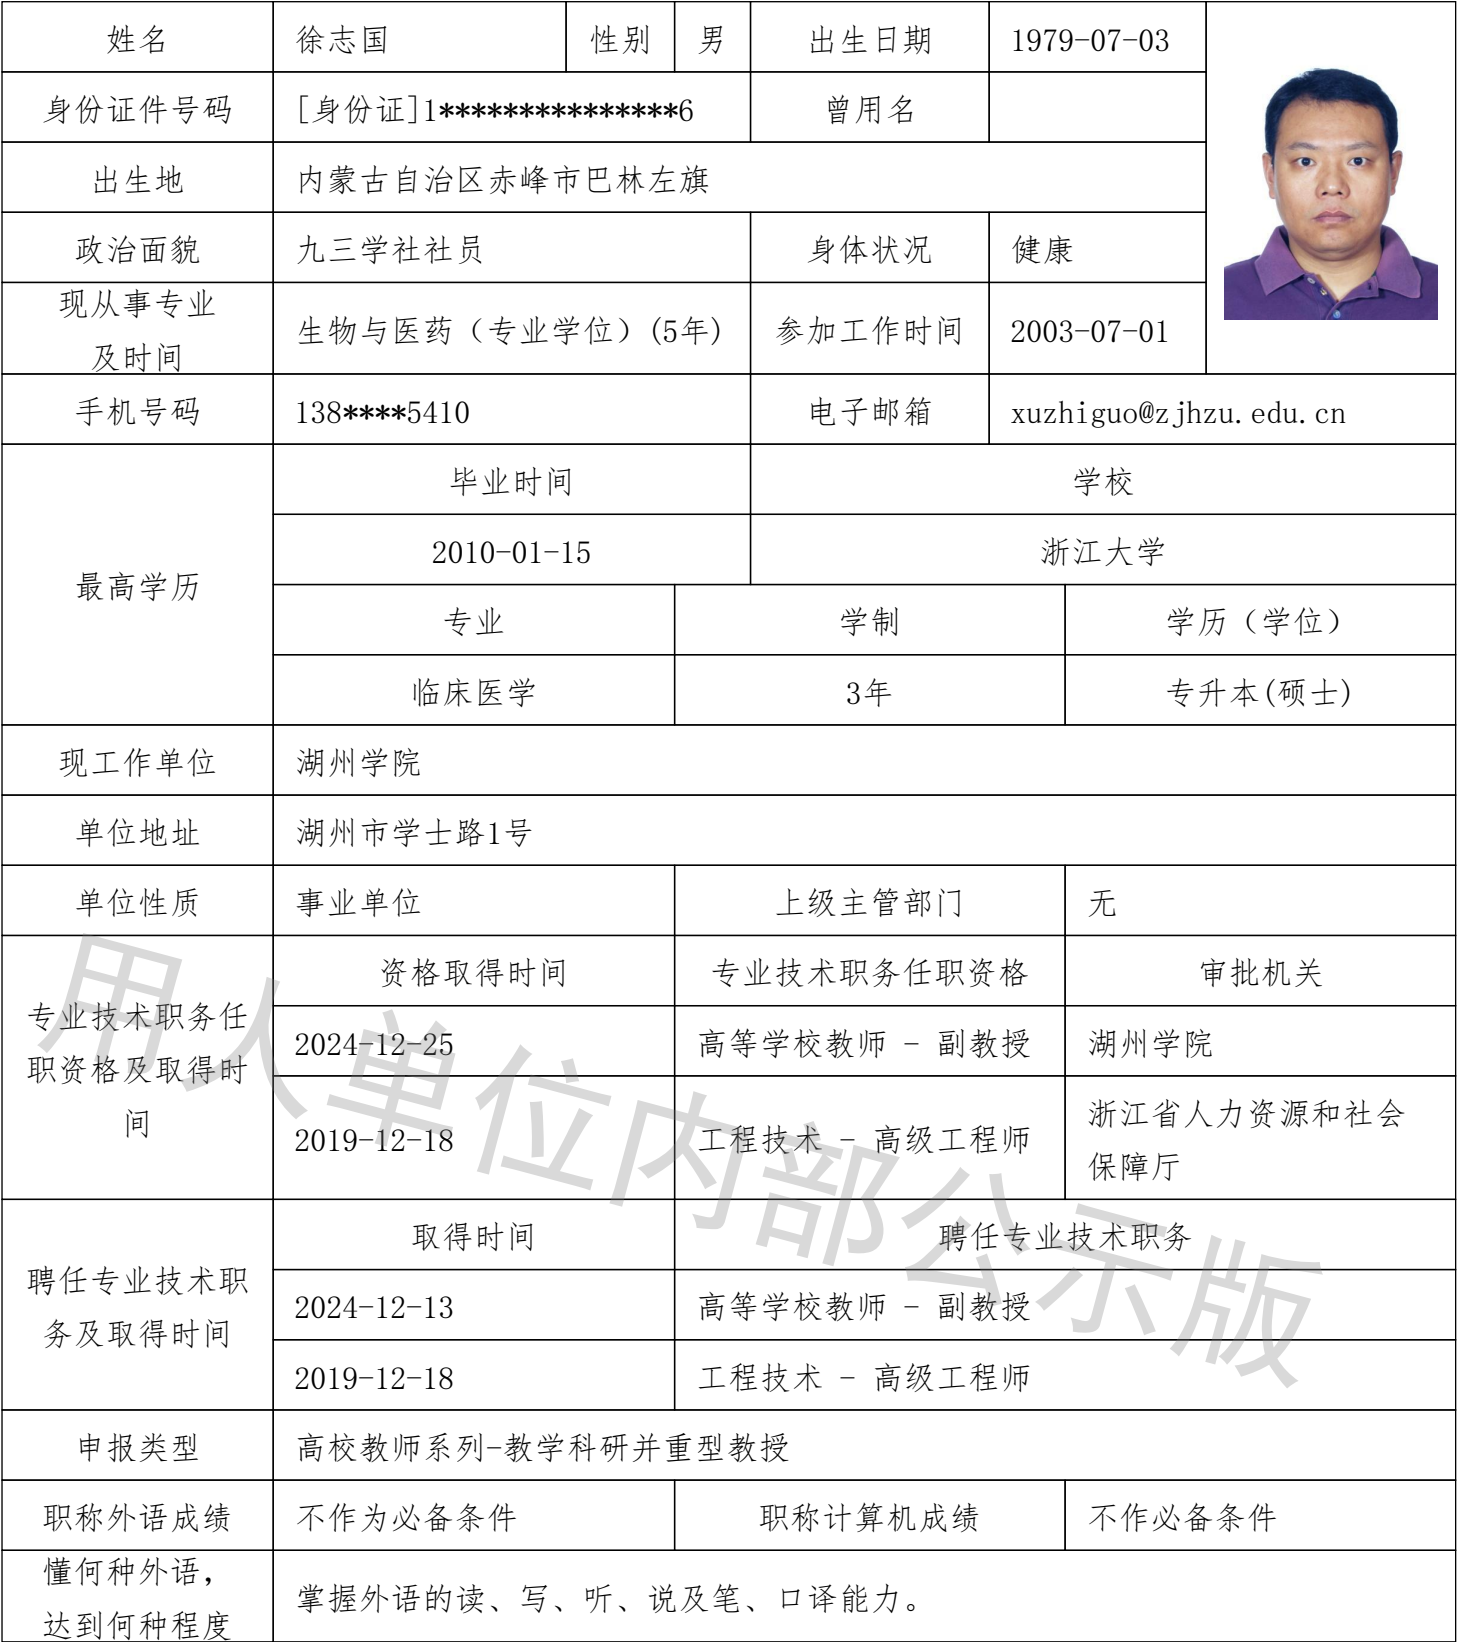 姓名 徐志国 性别 男 出生日期 1979-07-03
身份证件号码 [身份证]1***************6 曾用名
出生地 内蒙古自治区赤峰市巴林左旗
政治面貌 九三学社社员 身体状况 健康
现从事专业
及时间 生物与医药（专业学位）(5年) 参加工作时间 2003-07-01
手机号码 138****5410 电子邮箱 xuzhiguo@zjhzu.edu.cn
最高学历
毕业时间 学校
2010-01-15 浙江大学
专业 学制 学历（学位）
临床医学 3年 专升本(硕士)
现工作单位 湖州学院
单位地址 湖州市学士路1号
单位性质 事业单位 上级主管部门 无
专业技术职务任
职资格及取得时
间
资格取得时间 专业技术职务任职资格 审批机关
2024-12-25 高等学校教师 - 副教授 湖州学院
2019-12-18 工程技术 - 高级工程师 浙江省人力资源和社会
保障厅
聘任专业技术职
务及取得时间
取得时间 聘任专业技术职务
2024-12-13 高等学校教师 - 副教授
2019-12-18 工程技术 - 高级工程师
申报类型 高校教师系列-教学科研并重型教授
职称外语成绩 不作为必备条件 职称计算机成绩 不作必备条件
懂何种外语，
达到何种程度 掌握外语的读、写、听、说及笔、口译能力。
用人单位内部公示版